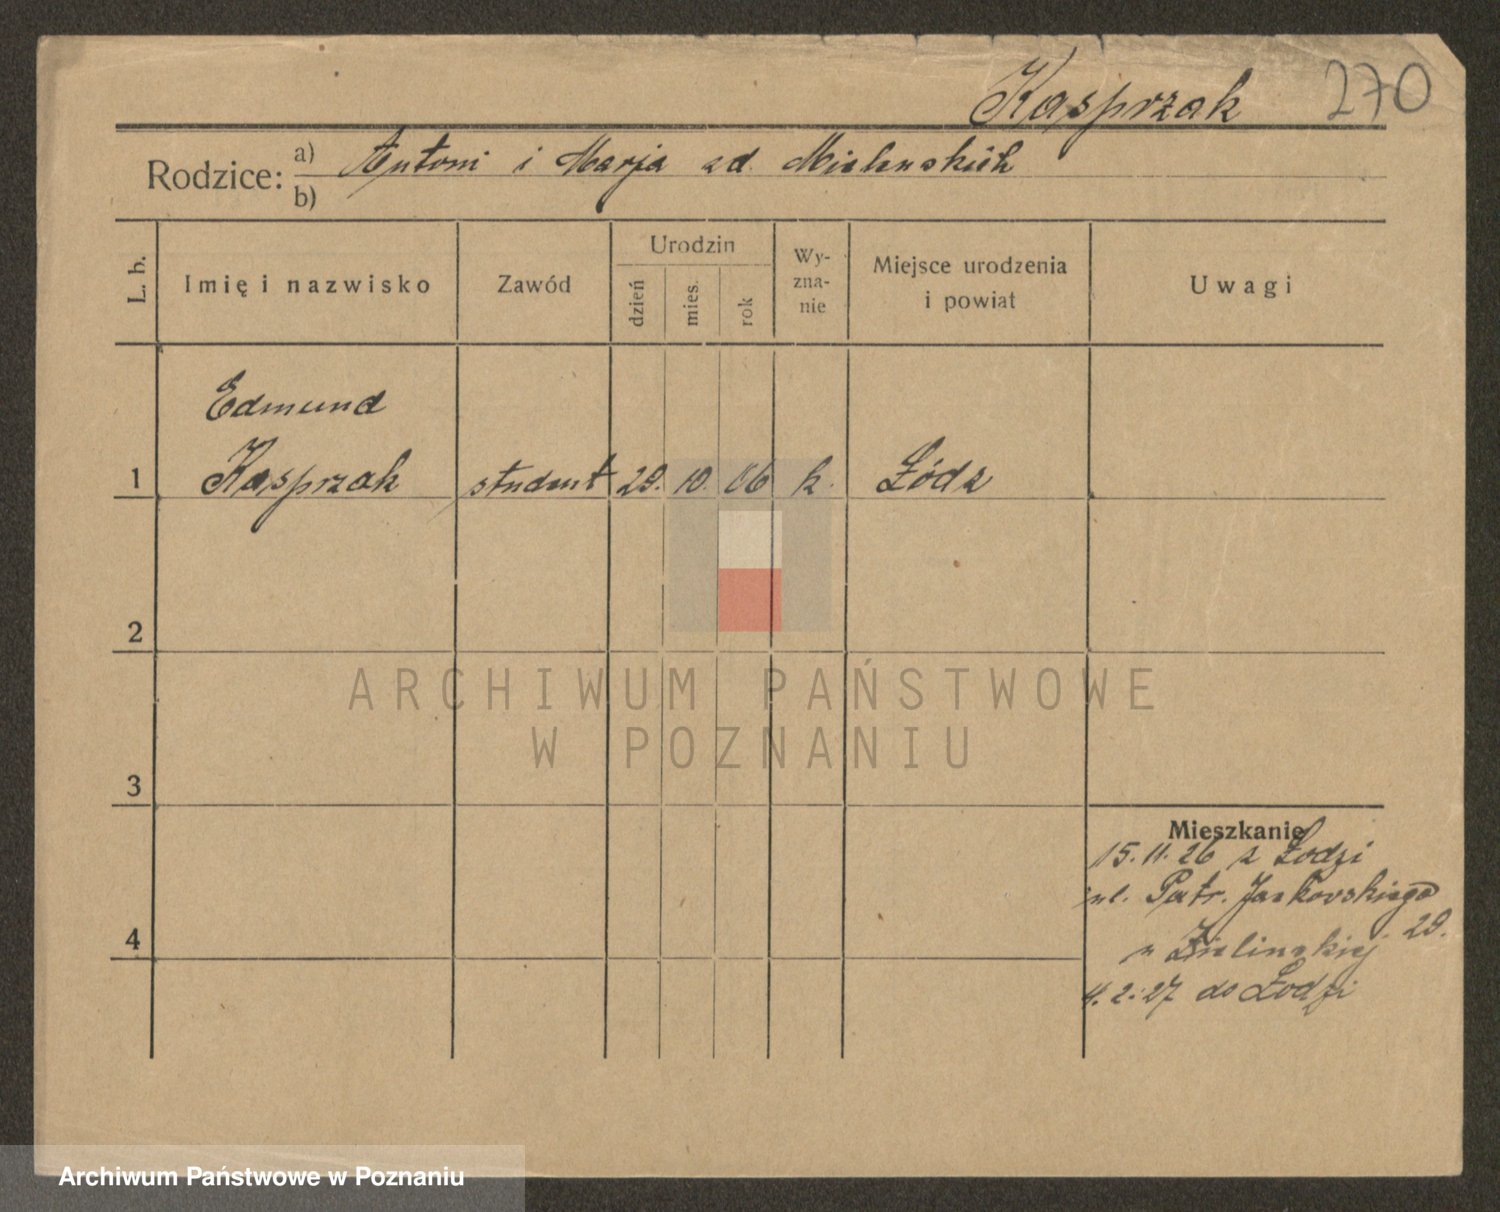 Kasprzak 270
Rodzice: a) Antoni i Marja zd.
b)
L. b.
Imię i nazwisko
Zawód
Urodzin
dzień
mies.
rok
Wy-
zna-
nie
Miejsce urodzenia
i powiat
Uwagi
Edmund
1 Kasprzak student 29. 10. 06 k. Łódz
2
ARCHIWUM PAŃSTWOWE
W POZNANIU
3
Mieszkanie
15. 11. 26 z Łodzi
ul. Patr. Jackowskiego
29.
u Zielinskiej
4
4. 2. 27 do Łodzi
Archiwum Państwowe w Poznaniu